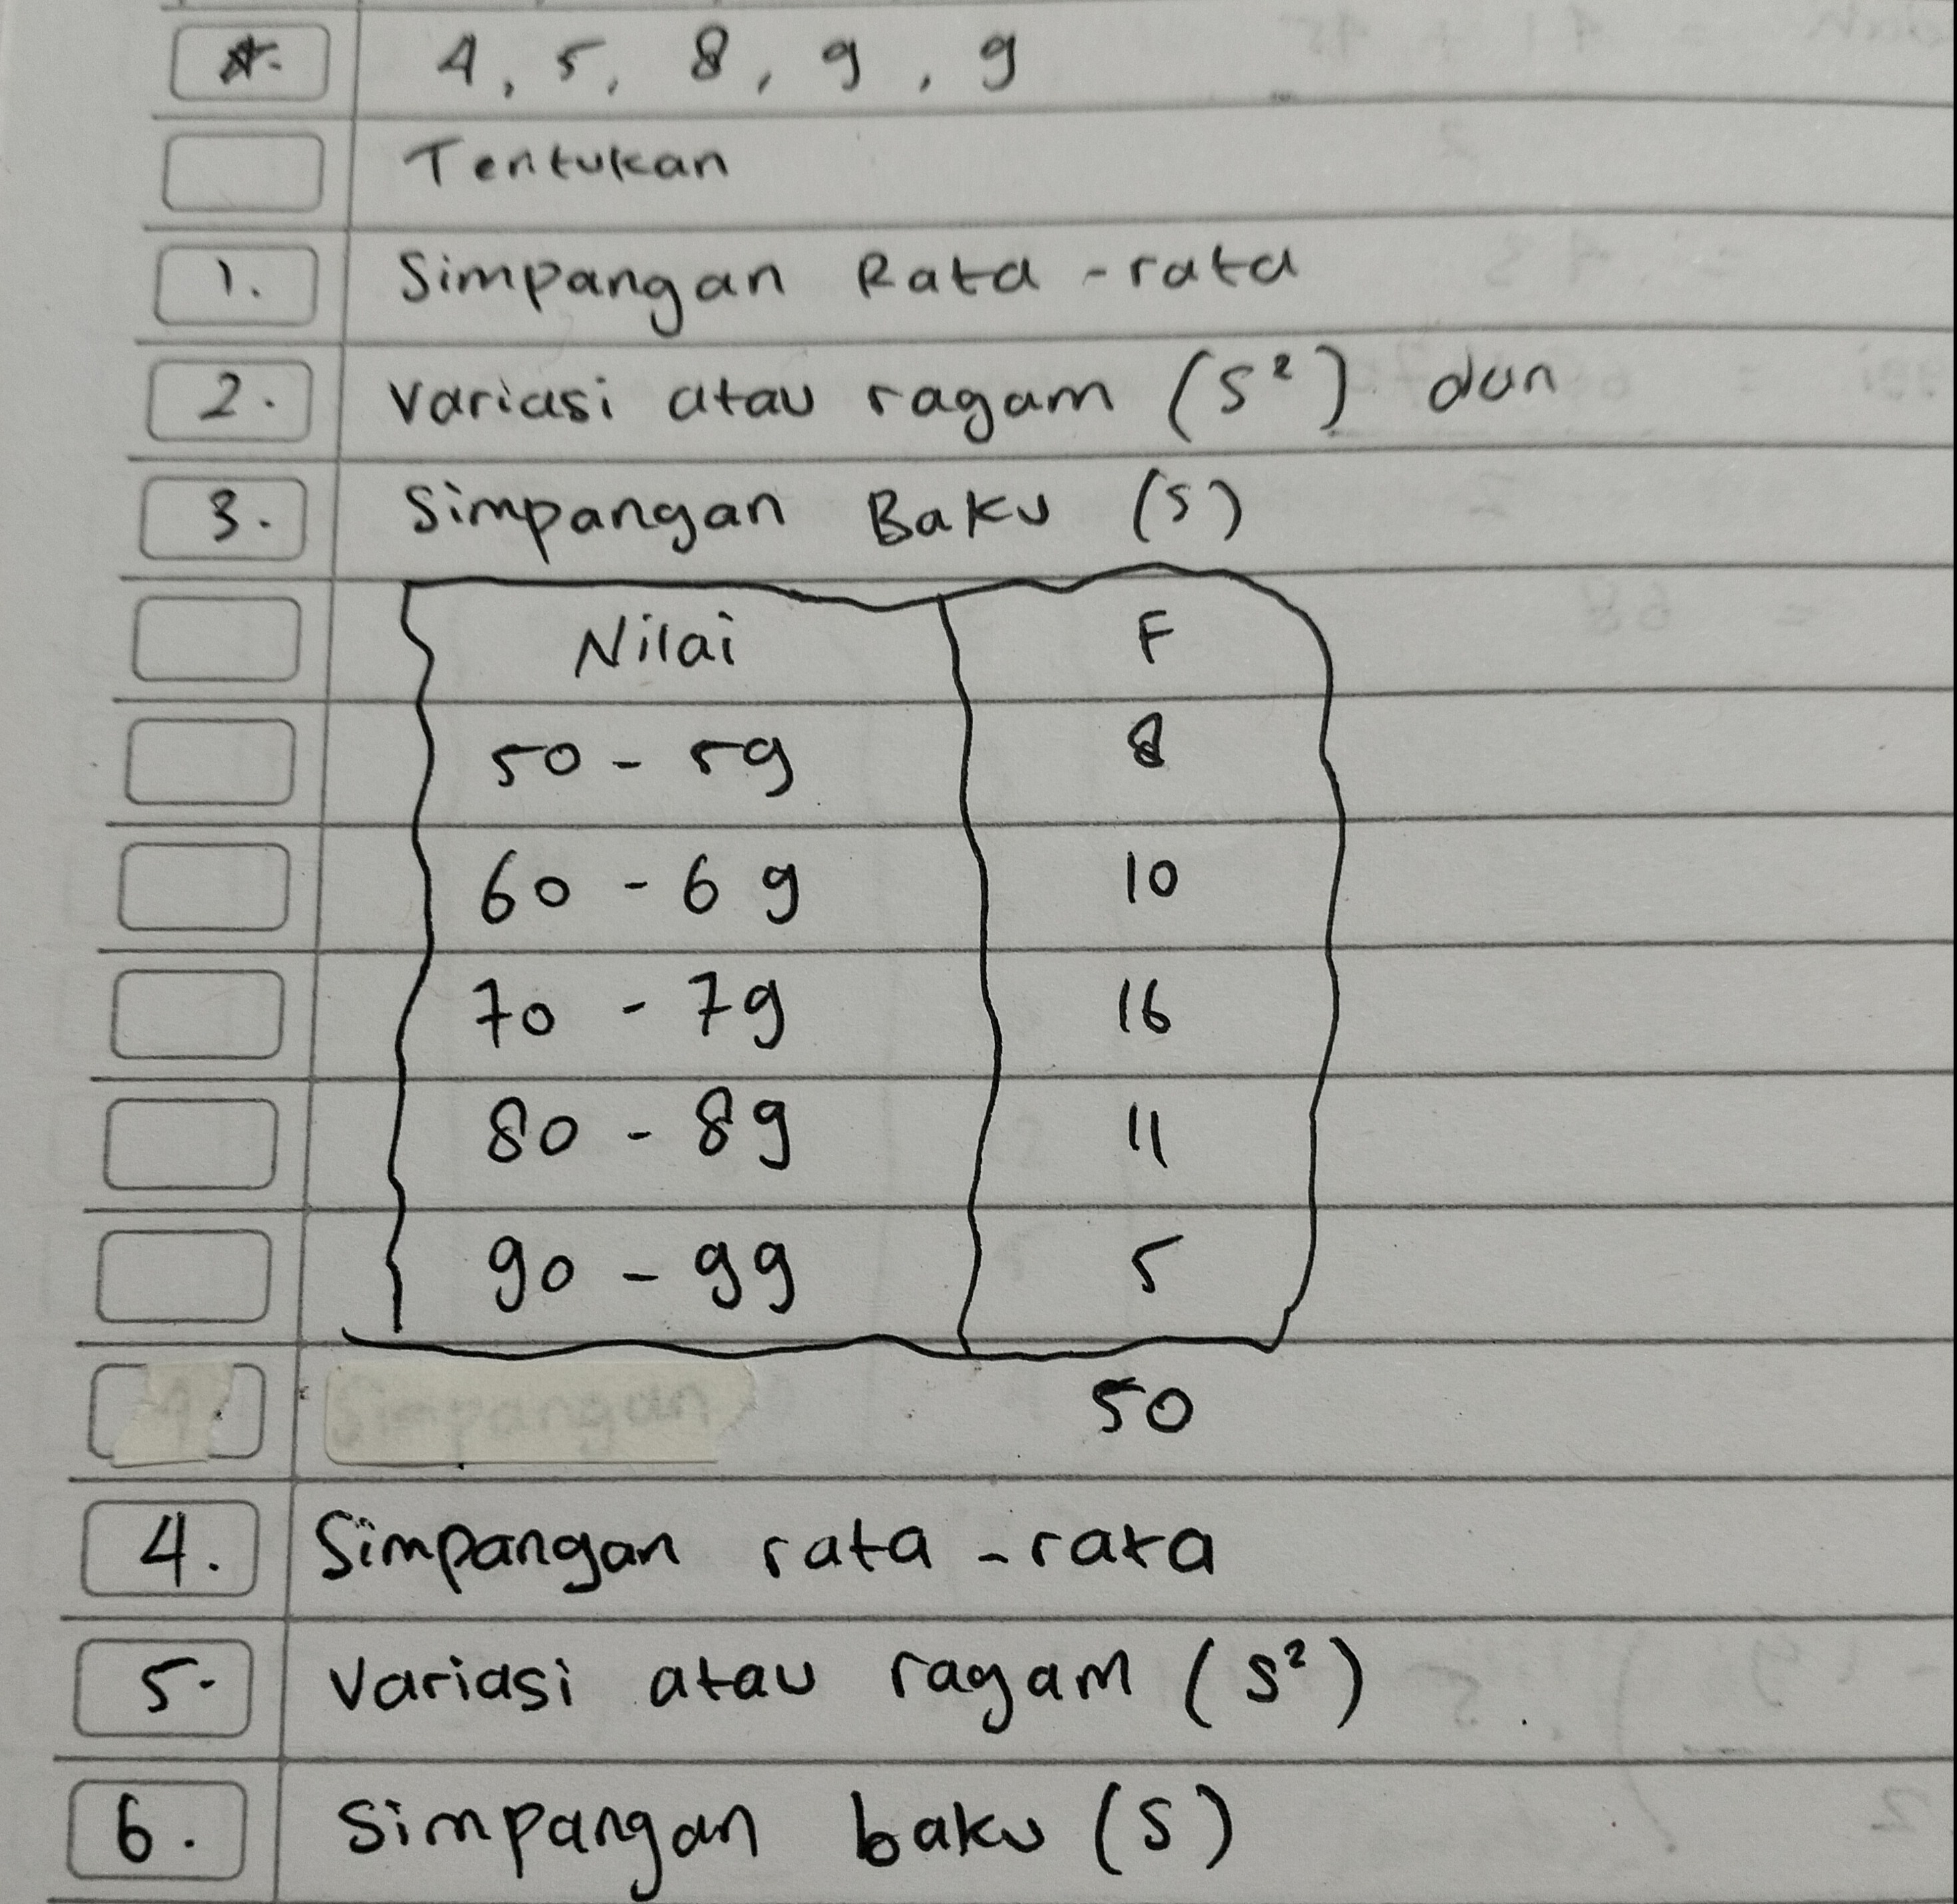 *. 4, 5, 8, 9, 9
Tentukan
1. Simpangan Rata-rata
2. Variasi atau ragam (S²) dan
3. Simpangan Baku (S)
Nilai F
50 - 59 8
60 - 69 10
70 - 79 16
80 - 89 11
90 - 99 5
Simpangan 50
4. Simpangan rata-rata
5. Variasi atau ragam (S²)
6. Simpangan baku (S)